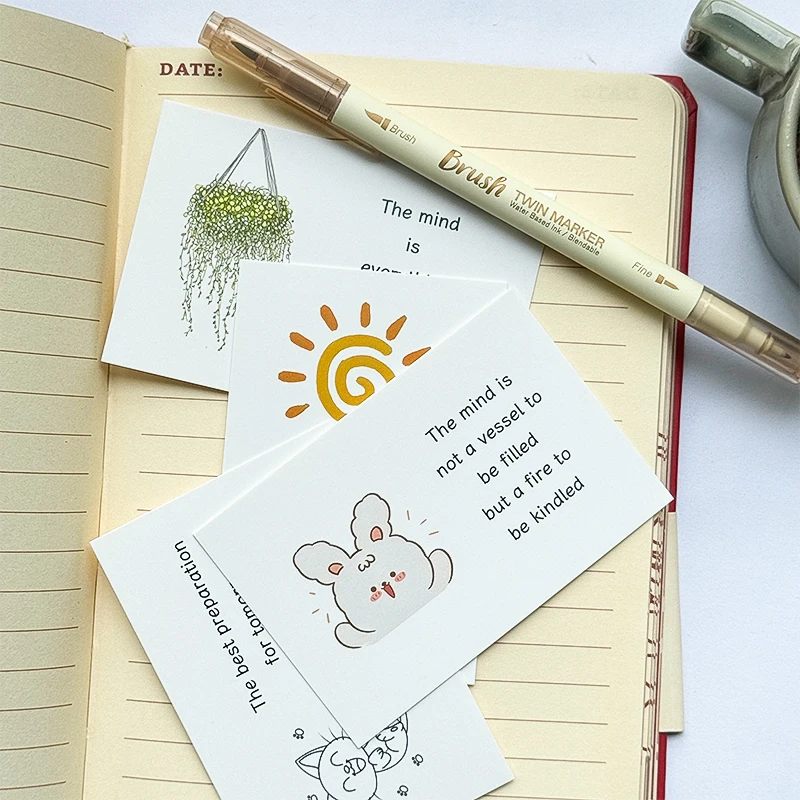 DATE:
Brush
Brush TWIN MARKER
Water Based Ink / Blendable
Fine
The mind
is
The mind is
not a vessel to
be filled
but a fire to
be kindled
The best preparation
for